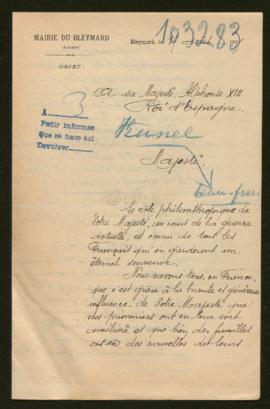 MAIRIE DU BLEYMARD
(Lozère)
OBJET :
Bleymard, le
103283
A 3
Pedir informes
Que se hace así
Devolver
A sa Majesté, Alphonse XIII
Roi d'Espagne.
Majesté
Le rôle philanthropique de
Votre Majesté, au cours de la guerre
actuelle, est connu de tous les
Français qui en garderont un
éternel souvenir.
Nous savons tous, en France
que, c'est grâce à la haute et généreuse
influence de Votre Majesté que
nos prisonniers ont eu leur sort
amélioré et que bien des familles
ont eu des nouvelles de leurs